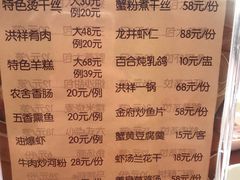 特色烫干丝 大30元 例20元
蟹粉煮干丝 58元/份
洪祥肴肉 大48元 例20元
龙井虾仁 88元/份
特色羊糕 大68元 例39元
百合炖乳鸽 10元/盅
农舍香肠 例20元
洪祥一锅 68元/份
五香熏鱼 例20元
金府炒鱼片 58元/份
油爆虾 例20元
蟹黄豆腐羹 15元/客
牛肉炒河粉 28元/份
虾汤兰花干 18元/份